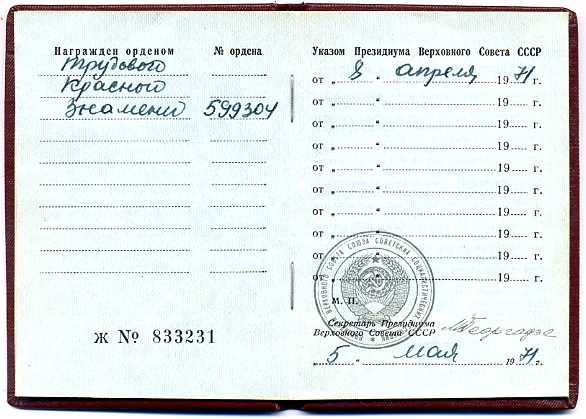 Награжден орденом
№ ордена
Трудового
Красного
Знамени 599304
Ж № 833231
Указом Президиума Верховного Совета СССР
от „ 8 “ апреля 1971 г.
от „ “ 19 г.
от „ “ 19 г.
от „ “ 19 г.
от „ “ 19 г.
от „ “ 19 г.
от „ “ 19 г.
от „ “ 19 г.
от „ “ 19 г.
от „ “ 19 г.
М. П.
Секретарь Президиума
Верховного Совета СССР
„ 5 “ мая 1971 г.